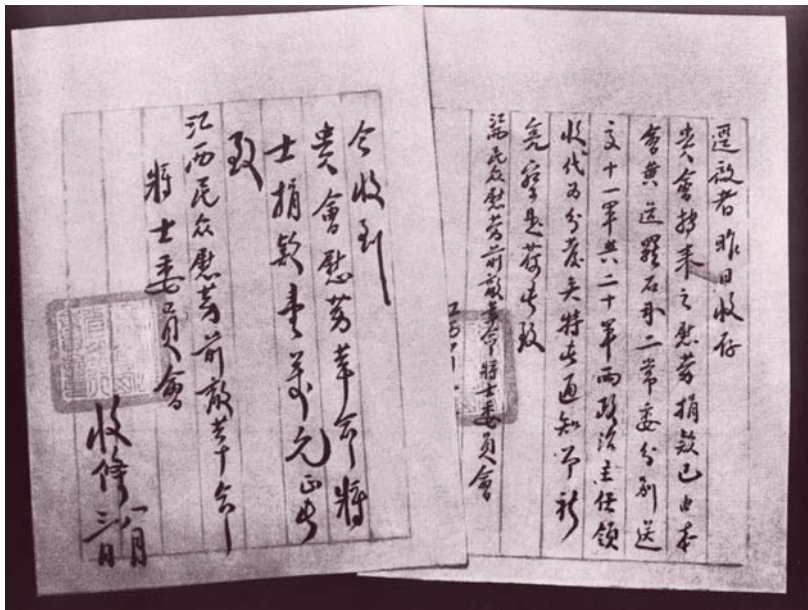 逕啟者昨日收存
貴會轉來之慰劳捐欵已由本
會黄道羅石冰二常委分别送
交十一軍與二十軍兩政治主任領
收代为分發矣特此通知即祈
亮察是荷此致
江西民众慰劳前敵革命將士委員會
今收到
貴會慰劳革命將
士捐欵壹萬元正此
致
江西民众慰劳前敵革命
將士委員會
收條 八月三日